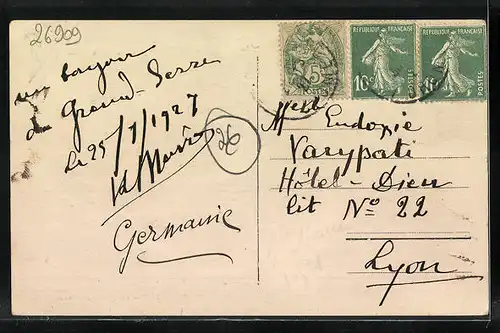 26909
un bonjour
du Grand-Serre
Le 25/7/1927
Germaine
26
5
POSTES
REPUBLIQUE FRANÇAISE
10c
POSTES
REPUBLIQUE FRANÇAISE
POSTES
Melle Eudoxie
Varypati
Hôtel-Dieu
lit No 22
Lyon